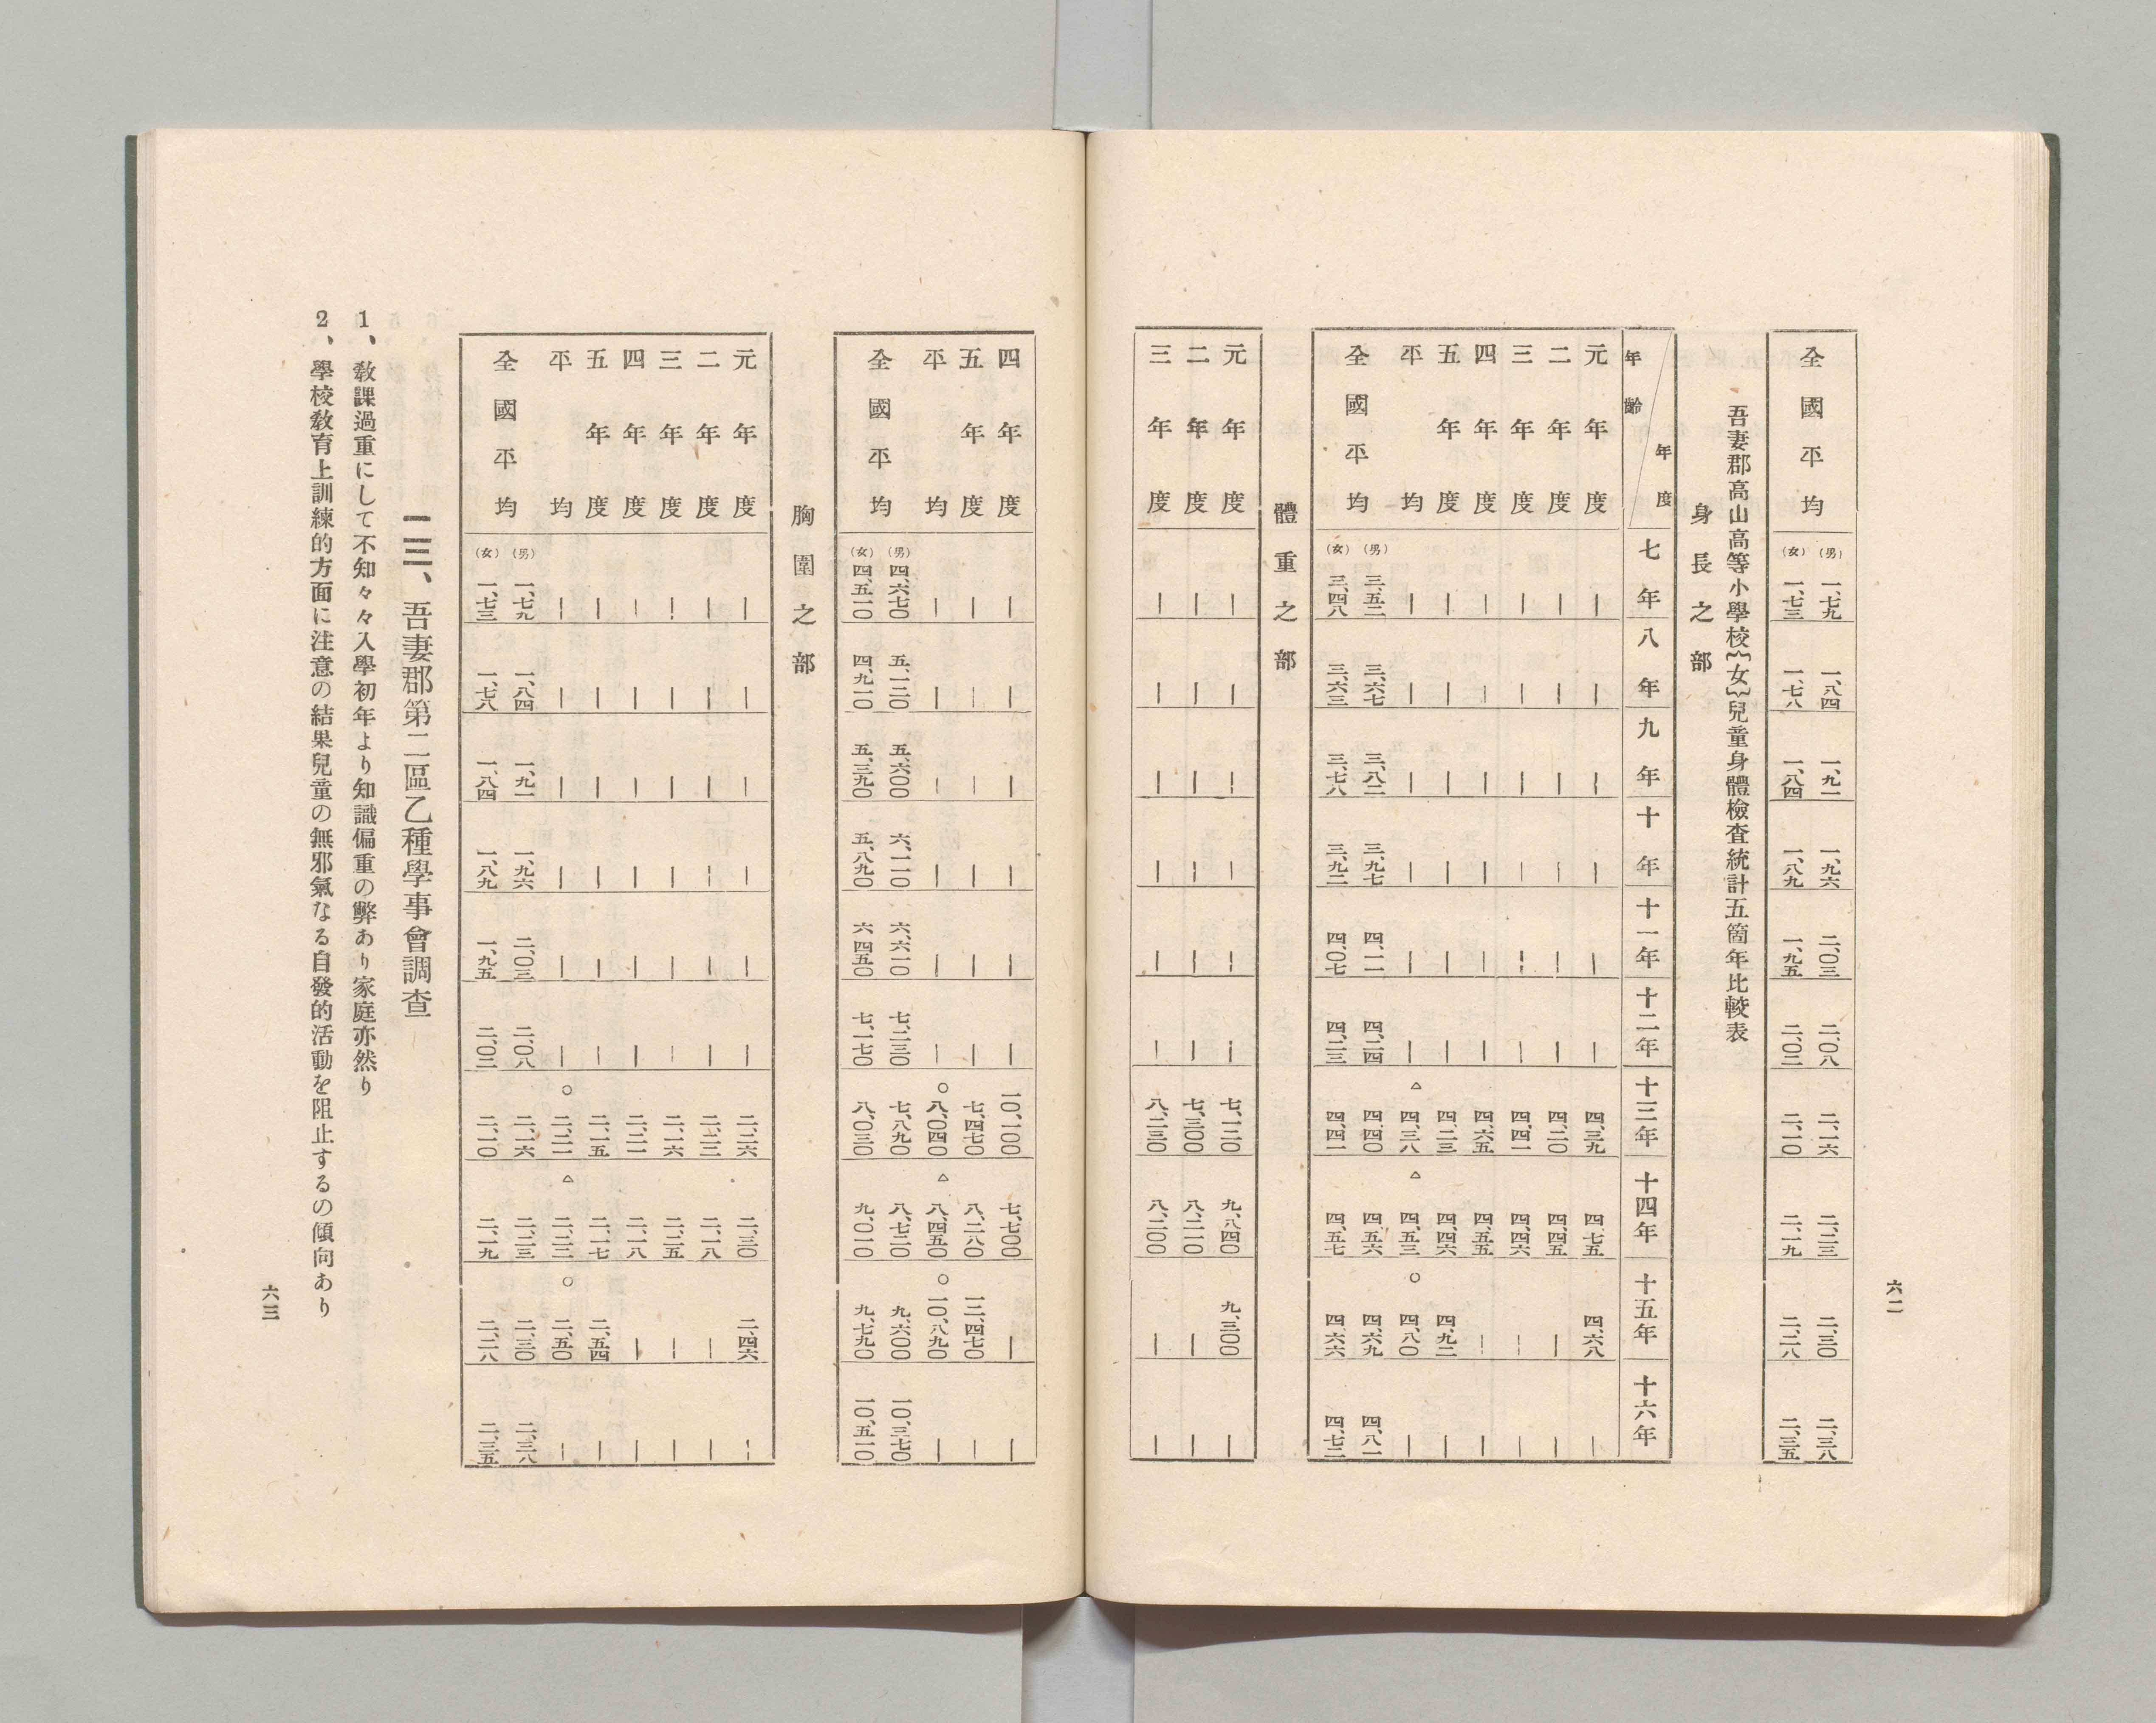 六二
全國平均 (男) 一、七九 一、八四 一、九一 一、九六 二、〇三 二、〇八 二、一六 二、二三 二、三〇 二、三八
(女) 一、七三 一、七八 一、八四 一、八九 一、九五 二、〇二 二、一〇 二、一九 二、二八 二、三五
吾妻郡高山高等小學校{女}兒童身體檢査統計五箇年比較表
身長之部
年度
年齡 七年 八年 九年 十年 十一年 十二年 十三年 十四年 十五年 十六年
元年度 ｜ ｜ ｜ ｜ ｜ ｜ 四、三九 四、七五 四、六八 ｜
二年度 ｜ ｜ ｜ ｜ ｜ ｜ 四、二〇 四、四五 ｜ ｜
三年度 ｜ ｜ ｜ ｜ ｜ ｜ 四、四一 四、四六 ｜ ｜
四年度 ｜ ｜ ｜ ｜ ｜ ｜ 四、六五 四、五五 ｜ ｜
五年度 ｜ ｜ ｜ ｜ ｜ ｜ 四、二三 四、四六 四、九二 ｜
平均 ｜ ｜ ｜ ｜ ｜ ｜ △四、三八 △四、五三 ○四、八〇 ｜
全國平均 (男) 三、五二 三、六七 三、八二 三、九七 四、一一 四、二四 四、四〇 四、五六 四、六九 四、八一
(女) 三、四八 三、六三 三、七八 三、九二 四、〇七 四、二三 四、四一 四、五七 四、六六 四、七二
體重之部
元年度 ｜ ｜ ｜ ｜ ｜ ｜ 七、一二〇 九、八四〇 九、三〇〇 ｜
二年度 ｜ ｜ ｜ ｜ ｜ ｜ 七、三〇〇 八、二一〇 ｜ ｜
三年度 ｜ ｜ ｜ ｜ ｜ ｜ 八、二三〇 八、二〇〇 ｜ ｜
四年度 ｜ ｜ ｜ ｜ ｜ ｜ 一〇、一〇〇 七、七〇〇 ｜ ｜
五年度 ｜ ｜ ｜ ｜ ｜ ｜ 七、四七〇 八、二八〇 一二、四七〇 ｜
平均 ｜ ｜ ｜ ｜ ｜ ｜ ○八、〇四〇 △八、四五〇 ○一〇、八九〇 ｜
全國平均 (男) 四、六七〇 五、一二〇 五、六〇〇 六、一一〇 六、六一〇 七、二三〇 七、八九〇 八、七二〇 九、六〇〇 一〇、三七〇
(女) 四、五一〇 四、九一〇 五、三九〇 五、八九〇 六四五〇 七、一七〇 八、〇三〇 九、〇一〇 九、七九〇 一〇、五一〇
胸圍之部
元年度 ｜ ｜ ｜ ｜ ｜ ｜ 二、二六 二、三〇 二、四六 ｜
二年度 ｜ ｜ ｜ ｜ ｜ ｜ 二、二二 二、一八 ｜ ｜
三年度 ｜ ｜ ｜ ｜ ｜ ｜ 二、一六 二、二五 ｜ ｜
四年度 ｜ ｜ ｜ ｜ ｜ ｜ 二、二一 二、一八 ｜ ｜
五年度 ｜ ｜ ｜ ｜ ｜ ｜ 二、一五 二、一七 二、五四 ｜
平均 ｜ ｜ ｜ ｜ ｜ ｜ ○二、二一 △二、二二 ○二、五〇 ｜
全國平均 (男) 一、七九 一、八四 一、九一 一、九六 二、〇三 二、〇八 二、一六 二、二三 二、三〇 二、三八
(女) 一、七三 一、七八 一、八四 一、八九 一、九五 二、〇二 二、一〇 二、一九 二、二八 二、三五
一三、吾妻郡第二區乙種學事會調査
1、敎課過重にして不知々々入學初年より知識偏重の弊あり家庭亦然り
2、學校敎育上訓練的方面に注意の結果兒童の無邪氣なる自發的活動を阻止するの傾向あり
六三